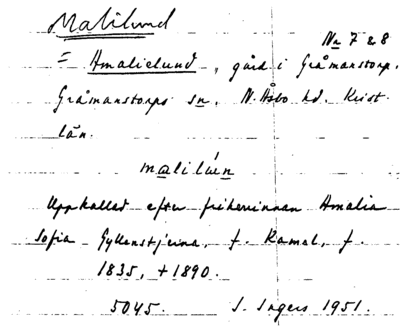 Malilund
Nr 7 & 8
= Amalielund, gård i Gråmanstorp,
Gråmanstorps sn, N. Åsbo hd. Krist.
län.
malilún
Uppkallad efter friherrinnan Amalia
Sofia Gyllenstjerna, f. Ramel, f.
1835, +1890.
5045. I. Ingers 1951.